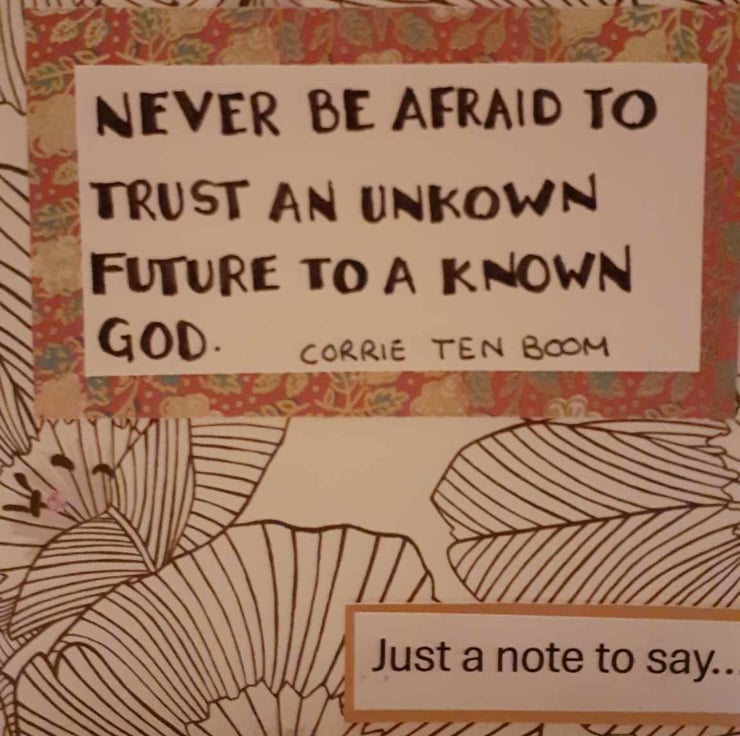 NEVER BE AFRAID TO
TRUST AN UNKOWN
FUTURE TO A KNOWN
GOD. CORRIE TEN BOOM
Just a note to say...